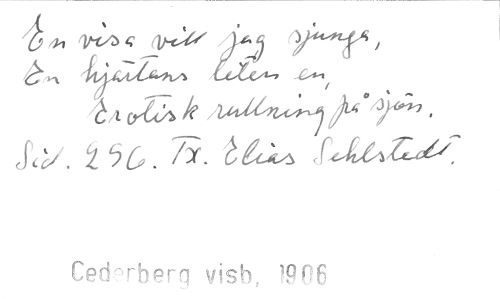 En visa vill jag sjunga,
En hjärtans liten en,
Erotisk rullning på sjön.
Sid. 296. Tx. Elias Sehlstedt.
Cederberg visb, 1906